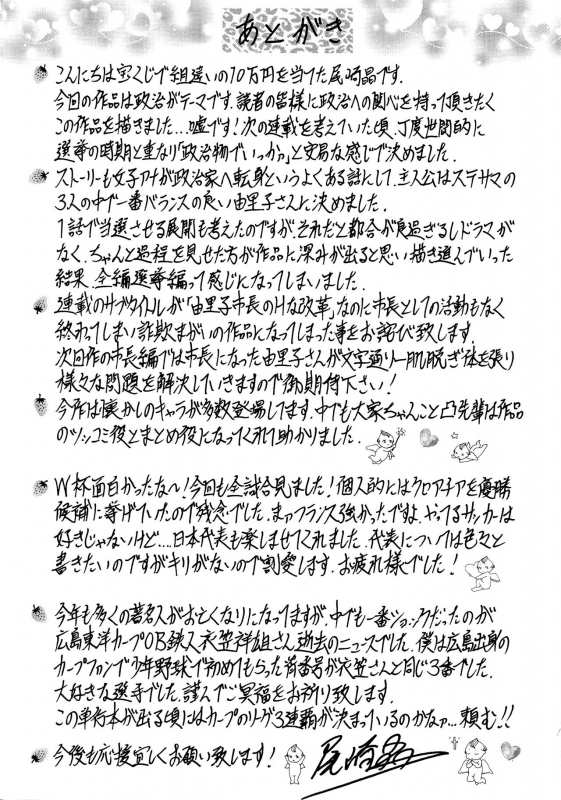 あとがき
こんにちは宝くじで組違いの10万円を当てた尾崎晶です.
今回の作品は政治がテーマです.読者の皆様に政治への関心を持って頂きたく
この作品を描きました…嘘です!次の連載を考えていた頃、丁度世間的に
選挙の時期と重なり「政治物でいっか。」と安易な感じで決めました.
ストーリーも女子アナが政治家へ転身というよくある話にして、主人公はステサマの
3人の中で一番バランスの良い由里子さんに決めました.
1話で当選させる展開も考えたのですが、それだと都合が良過ぎるしドラマが
なく、ちゃんと過程を見せた方が作品に深みが出ると思い描き進んでいった
結果、全編選挙編って感じになってしまいました.
連載のサブタイトルが「由里子市長のHな改革」なのに市長としての活動もなく
終わってしまい詐欺まがいの作品になってしまった事をお詫び致します.
次回作の市長編では市長になった由里子さんが文字通り一肌脱ぎ体を張り
様々な問題を解決していきますので御期待下さい!
今作は懐かしのキャラが多数登場してます.中でも大家ちゃんこと凸先輩は作品
のツッコミ役とまとめ役になってくれて助かりました.
W杯面白かったな〜!今回も全試合見ました!個人的にはクロアチアを優勝
候補に挙げていたので残念でした.まァフランス強かったですよ、やってるサッカーは
好きじゃないけど….日本代表も楽しませてくれました.代表については色々と
書きたいのですがキリがないので割愛します.お疲れ様でした!
今年も多くの著名人がお亡くなりになってますが、中でも一番ショックだったのが
広島東洋カープOB鉄人衣笠祥雄さん逝去のニュースでした.僕は広島出身の
カープファンで少年野球で初めてもらった背番号が衣笠さんと同じ3番でした.
大好きな選手でした.謹んでご冥福をお祈り致します.
この単行本が出る頃にはカープのリーグ3連覇が決まっているのかなァ…頼む!!
今後も応援宜しくお願い致します!
尾崎晶